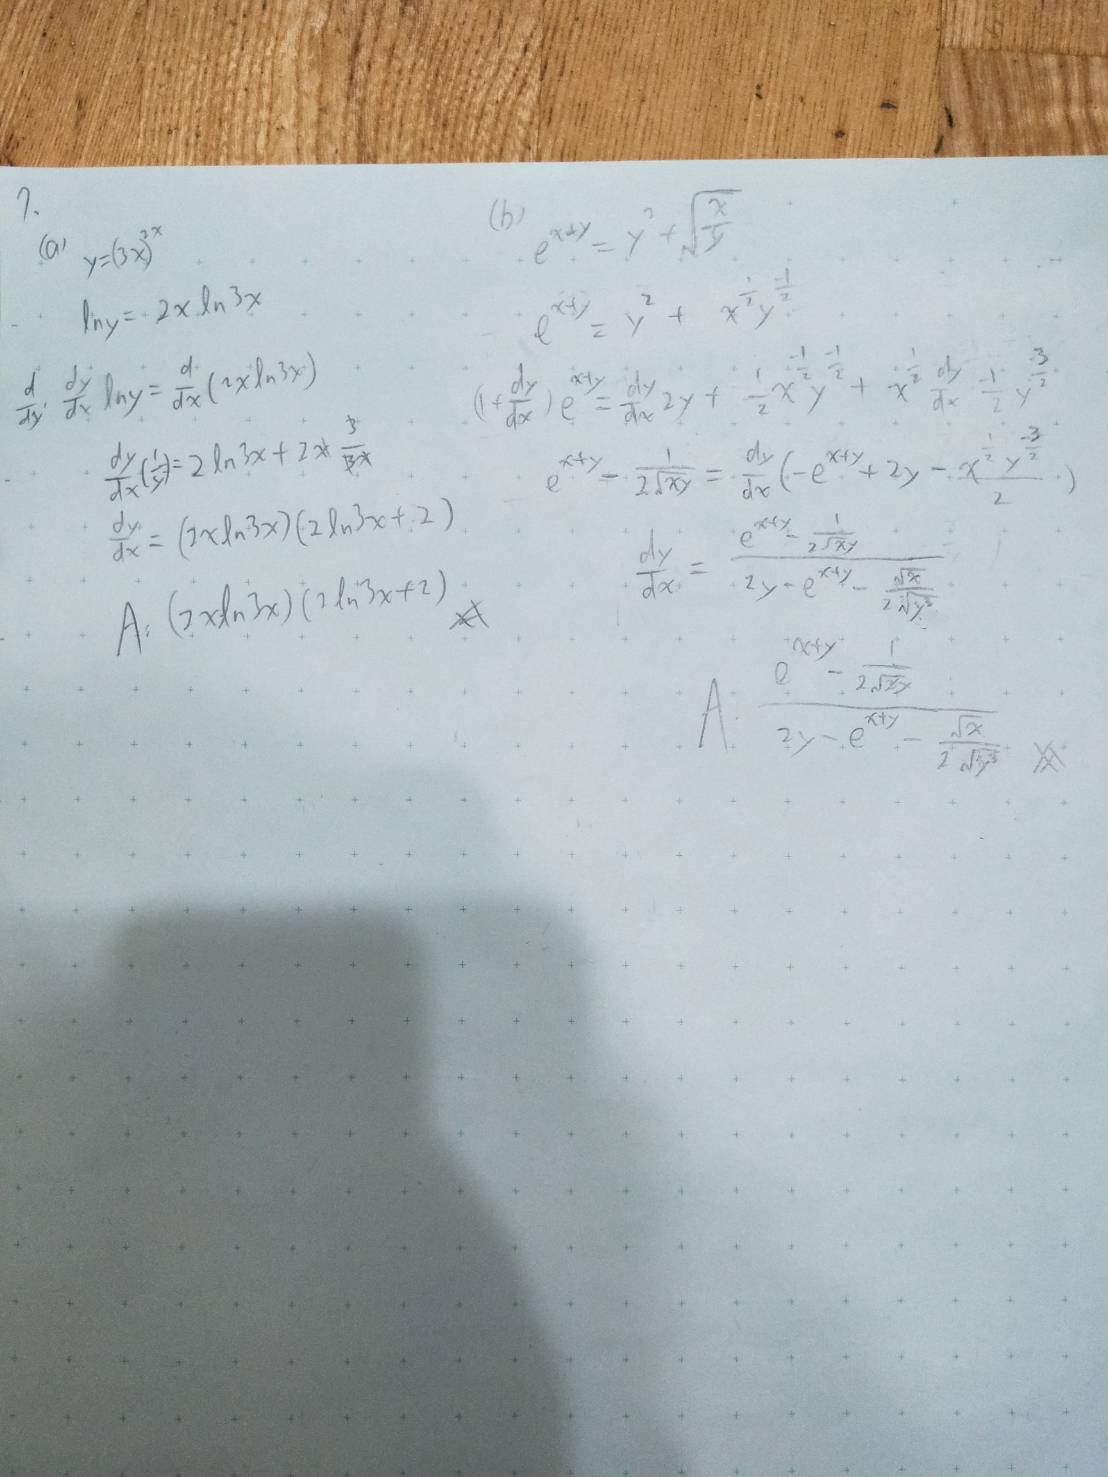 7.
(a) y=(3x)^2x
lny= 2x ln3x
d/dy · dy/dx lny = d/dx (2xln3x)
dy/dx (1/y) = 2 ln3x + 2x 3/3x
dy/dx = (2xln3x)(2ln3x+2)
A: (2xln3x)(2ln3x+2)
(b) e^x+y = y^2 + √x/y
e^x+y = y^2 + x^1/2 y^-1/2
(1+dy/dx) e^x+y = dy/dx 2y + 1/2 x^-1/2 y^-1/2 + x^1/2 dy/dx -1/2 y^-3/2
e^x+y - 1/2√xy = dy/dx (-e^x+y + 2y - x^1/2 y^-3/2 / 2)
dy/dx = e^x+y - 1/2√xy / 2y - e^x+y - √x/2√y^3
A: e^x+y - 1/2√xy / 2y - e^x+y - √x/2√y^3